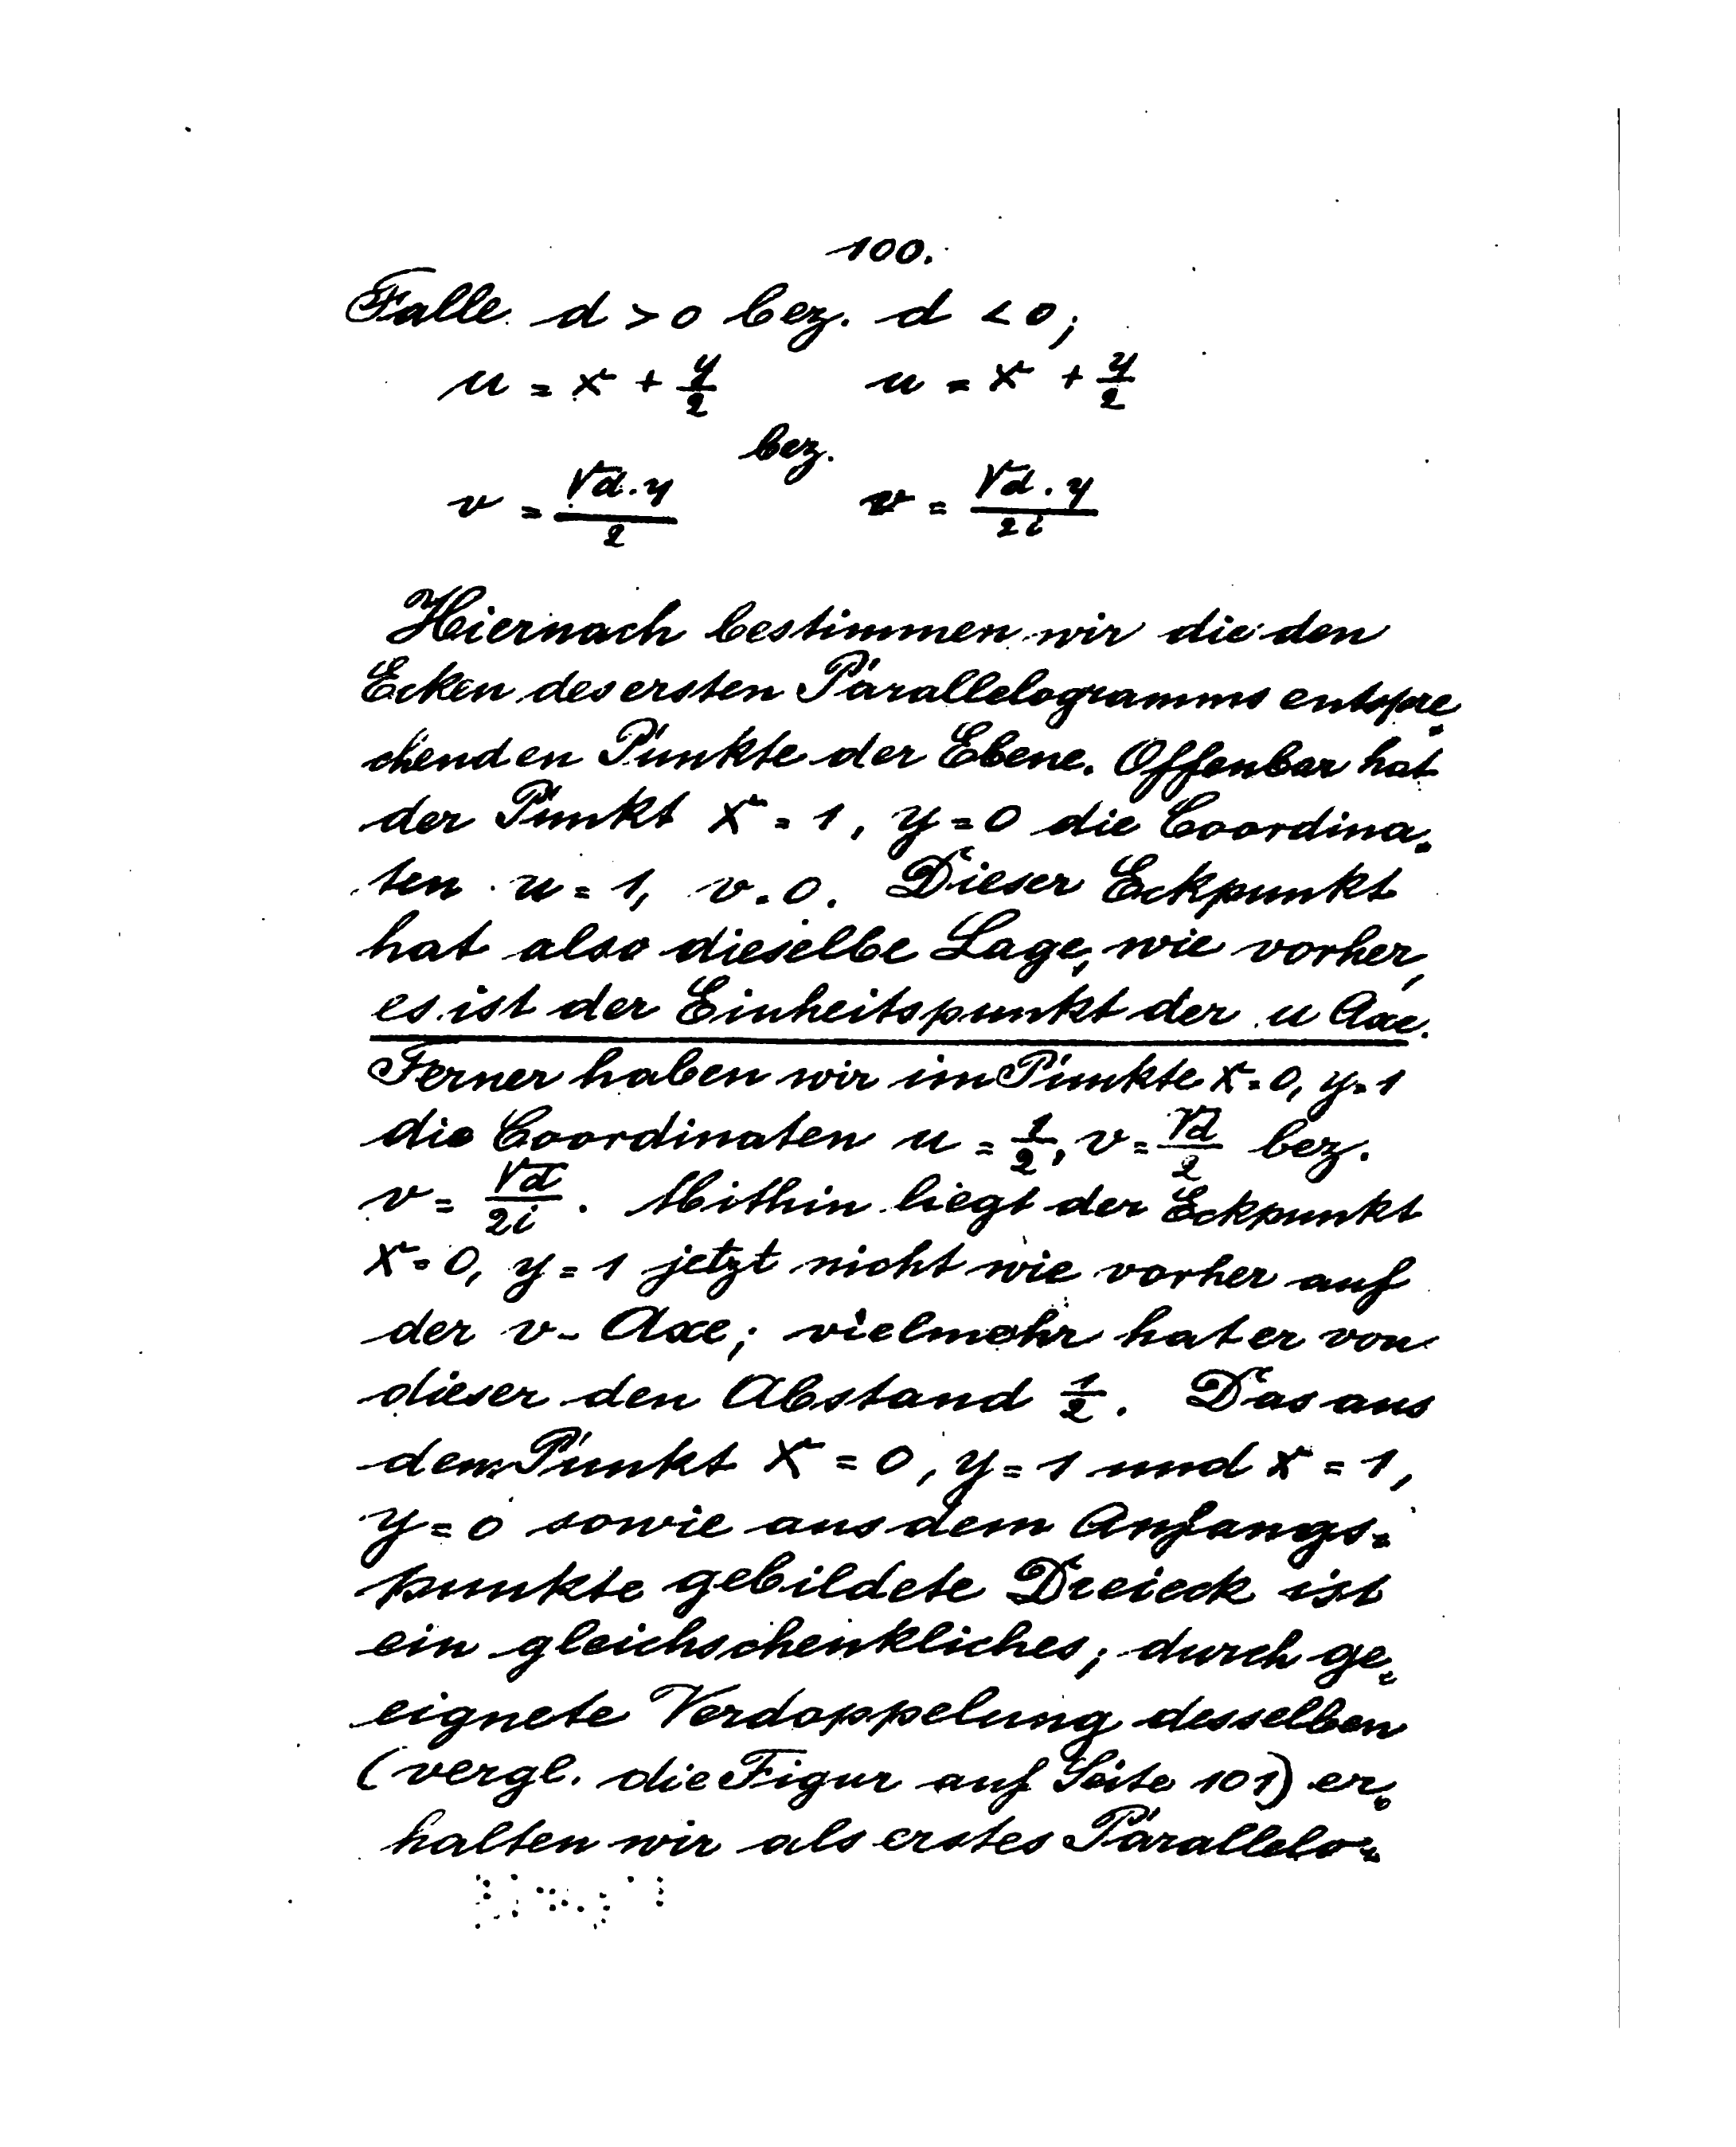 100.
Falle d > 0 bez. d < 0;
u = x + y/2     u = x + y/2
bez.
v = √d · y / 2     v = √d · y / 2i
Hiernach bestimmen wir die den
Ecken des ersten Parallelogramms entspre=
chenden Punkte der Ebene. Offenbar hat
der Punkt x = 1, y = 0 die Coordina=
ten u = 1, v = 0. Dieser Eckpunkt
hat also dieselbe Lage, wie vorher,
es ist der Einheitspunkt der u Axe.
Ferner haben wir im Punkte x = 0, y = 1
die Coordinaten u = 1/2, v = √d/2 bez.
v = √d/2i. Mithin liegt der Eckpunkt
x = 0, y = 1 jetzt nicht wie vorher auf
der v- Axe; vielmehr hat er von
dieser den Abstand 1/2. Das aus
dem Punkt x = 0, y = 1 und x = 1,
y = 0 sowie aus dem Anfangs=
punkte gebildete Dreieck ist
ein gleichschenkliches; durch ge=
eignete Verdoppelung desselben
(vergl. die Figur auf Seite 101) er=
halten wir als erstes Parallelo=